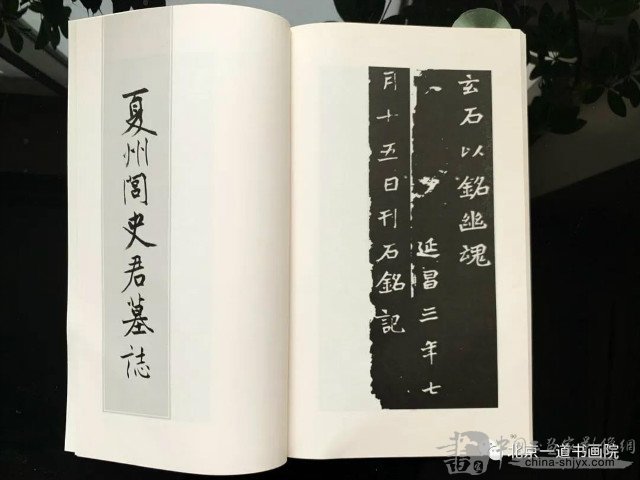 夏州閭史君墓誌
玄石以銘幽魂
延昌三年七
月十五日刊石銘記
書
北京一道书画院
china-shjyx.com